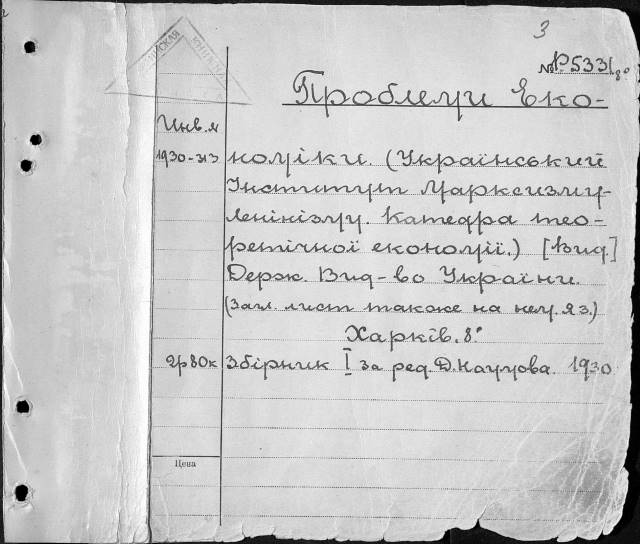 3
№ Р5331 8°
Проблеми Еко-
Инв. №
1930-313 номіки. (Український
Інститут Марксизму-
Ленінізму. Катедра тео-
ретічної економії.) [Вид.]
Держ. Вид-во України.
(Загл. лист також на нем. яз.)
Харків. 8°
2р80к Збірник I за ред. Д. Наумова. 1930
Цена